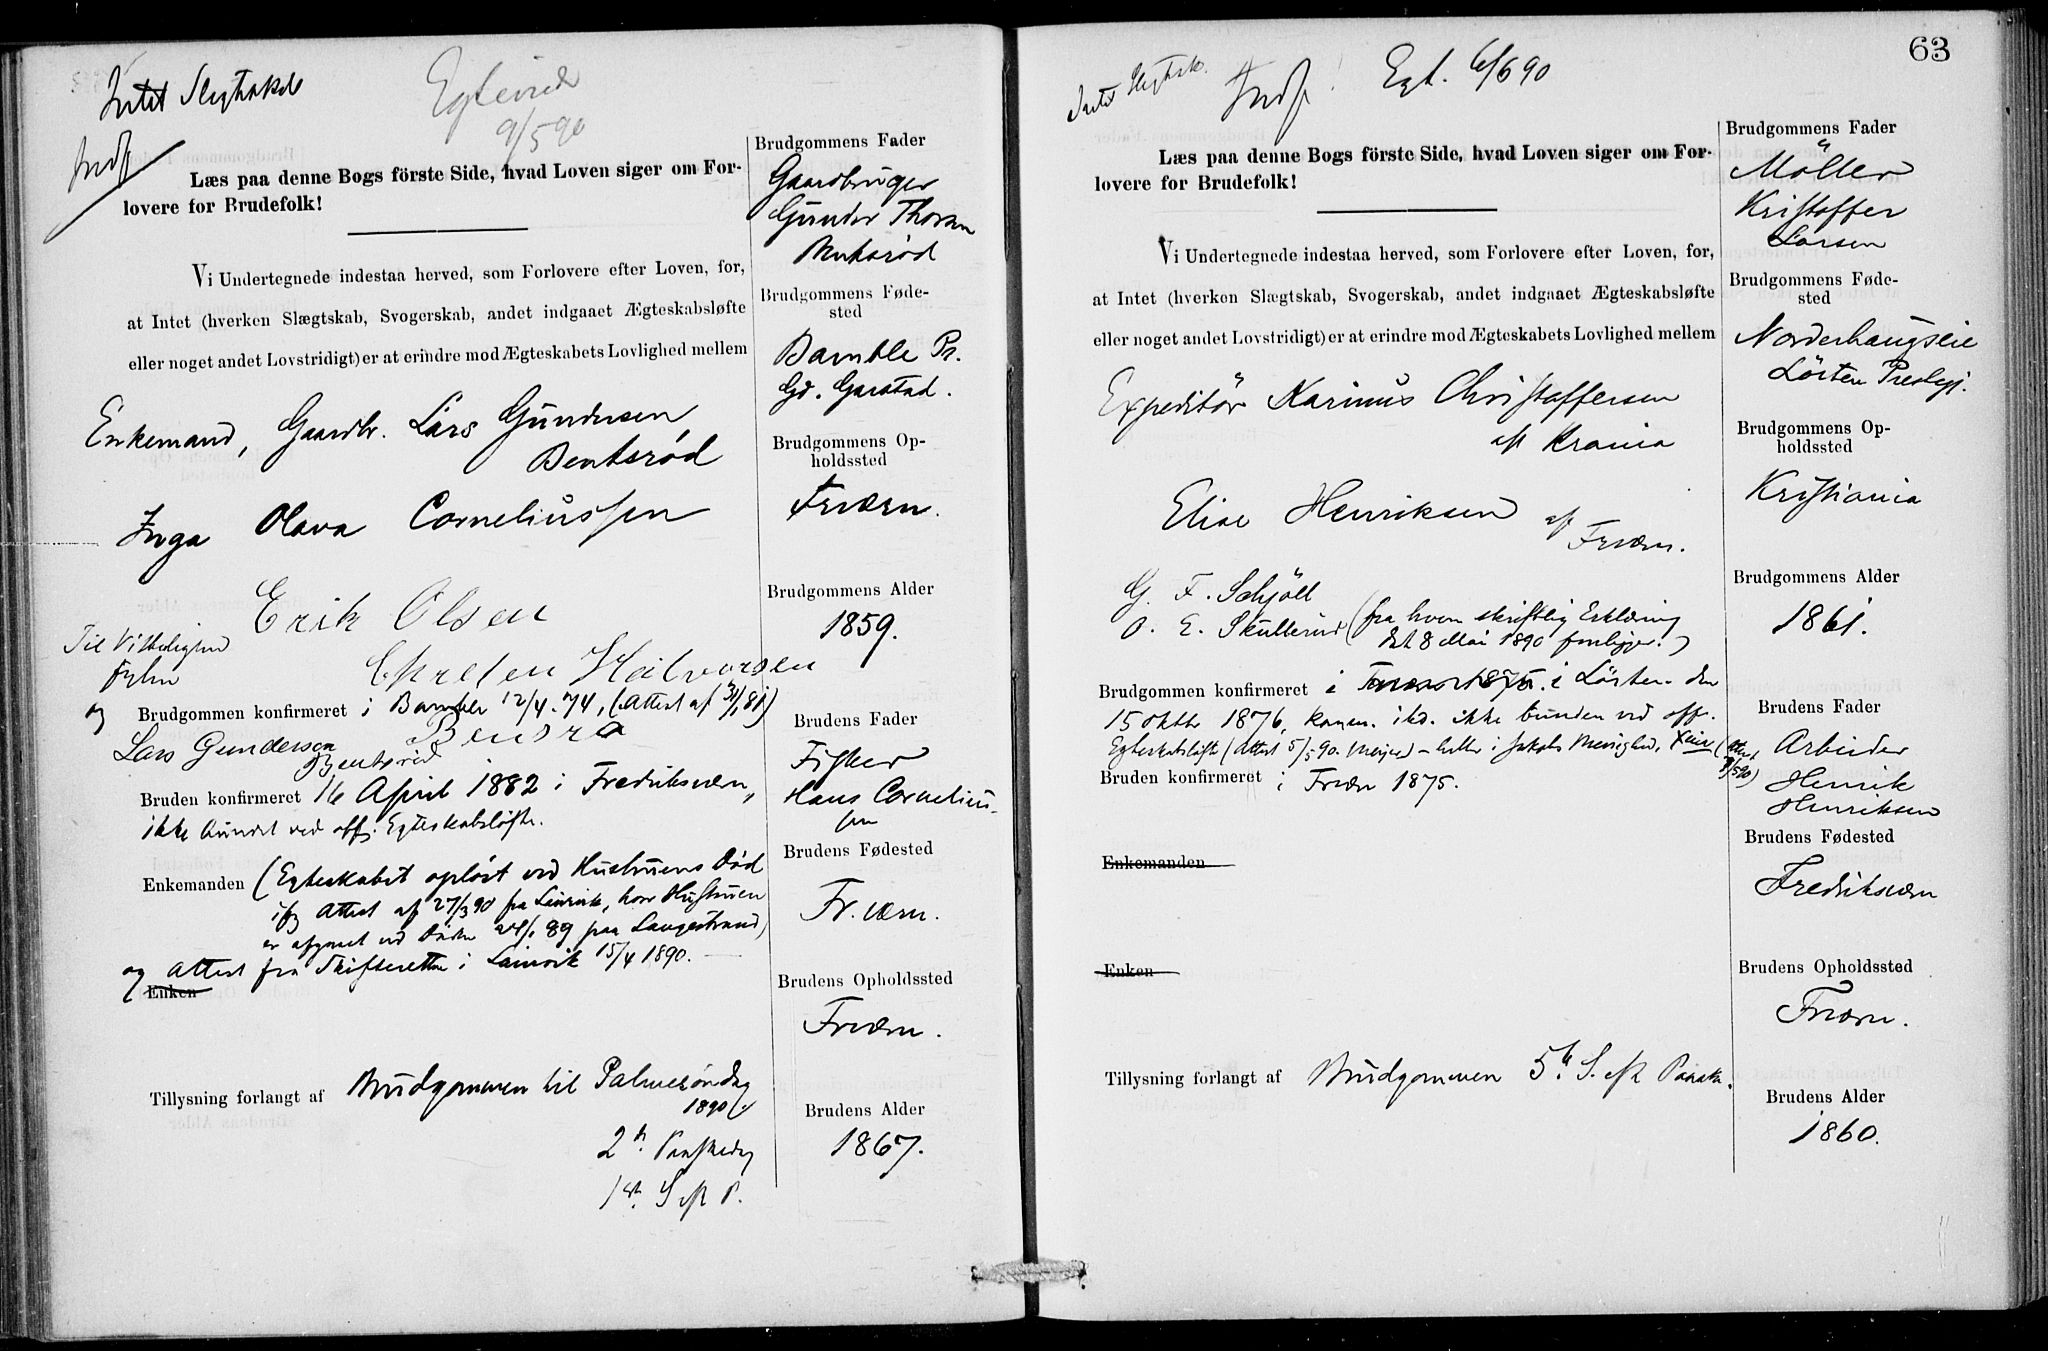 Intet Slegtskab
Egteviede
9/5 90
Indf
Læs paa denne Bogs förste Side, hvad Loven siger om For-
lovere for Brudefolk!
Vi Undertegnede indestaa herved, som Forlovere efter Loven, for,
at Intet (hverken Slægtskab, Svogerskab, andet indgaaet Ægteskabsløfte
eller noget andet Lovstridigt) er at erindre mod Ægteskabets Lovlighed mellem
Enkemand, Gaardbr. Lars Gundersen
Bentsrød
Inga Olava Corneliussen
Erik Olsen
Til Vitterlighed
Halvorsen
og
Brudgommen konfirmeret i Bamble 12/4 74, (Attest af 31/1 81)
Lars Gunderson
Bentsrød
Bruden konfirmeret 16 April 1882 i Fredriksværn,
ikke bundet ved off. Egteskabsløfte.
Enkemanden (Egteskabet opløst ved Hustruens Død
ifg Attest af 27/3 90 fra Laurvik, hvor Hustruen
er afgaaet ved Døden 24/1 89 paa Langestrand)
og Attest fra Skifteretten i Laurvik 15/4 1890.
Enken
Tillysning forlangt af Brudgommen til Palmesøndag
1890
2den Paaskedag
1ste S. eft P.
Brudgommens Fader
Gaardbruger
Gunder Thorsen
Bentsrød
Brudgommens Føde-
sted
Bamble Pr.
Gd. Garstad.
Brudgommens Op-
holdssted
Frværn.
Brudgommens Alder
1859.
Brudens Fader
Fisker
Hans Cornelius-
sen
Brudens Fødested
Fr.værn.
Brudens Opholdssted
Frværn.
Brudens Alder
1867.
63
Intet Slegtsk.
Indf! Egt. 6/6 90
Læs paa denne Bogs förste Side, hvad Loven siger om For-
lovere for Brudefolk!
Vi Undertegnede indestaa herved, som Forlovere efter Loven, for,
at Intet (hverken Slægtskab, Svogerskab, andet indgaaet Ægteskabsløfte
eller noget andet Lovstridigt) er at erindre mod Ægteskabets Lovlighed mellem
Expeditör Karinus Christoffersen
af Krania
Elise Henriksen af
Frværn.
G. F. Schjöll
O. E. Skullerud (fra hvem skriftlig Erklæring
dat 8 Mai 1890 foreligger.)
Brudgommen konfirmeret i Frværn 1875. i Lörten den
15 Oktbr 1876, ikke bunden ved off.
Egteskabsløfte (Attest 5/5 90. Meijer) - heller i Jakobs Menighed,
Bruden konfirmeret i Frværn 1875.
Enkemanden
Enken
Tillysning forlangt af Brudgommen 5te S. eft Paaske.
Brudgommens Fader
Möller
Kristoffer
Larsen
Brudgommens Føde-
sted
Norderhaugseie
Lörten Prestegj.
Brudgommens Op-
holdssted
Kristiania
Brudgommens Alder
1861.
Brudens Fader
Arbeider
Henrik
Henriksen
Brudens Fødested
Fredriksværn
Brudens Opholdssted
Frværn.
Brudens Alder
1860.